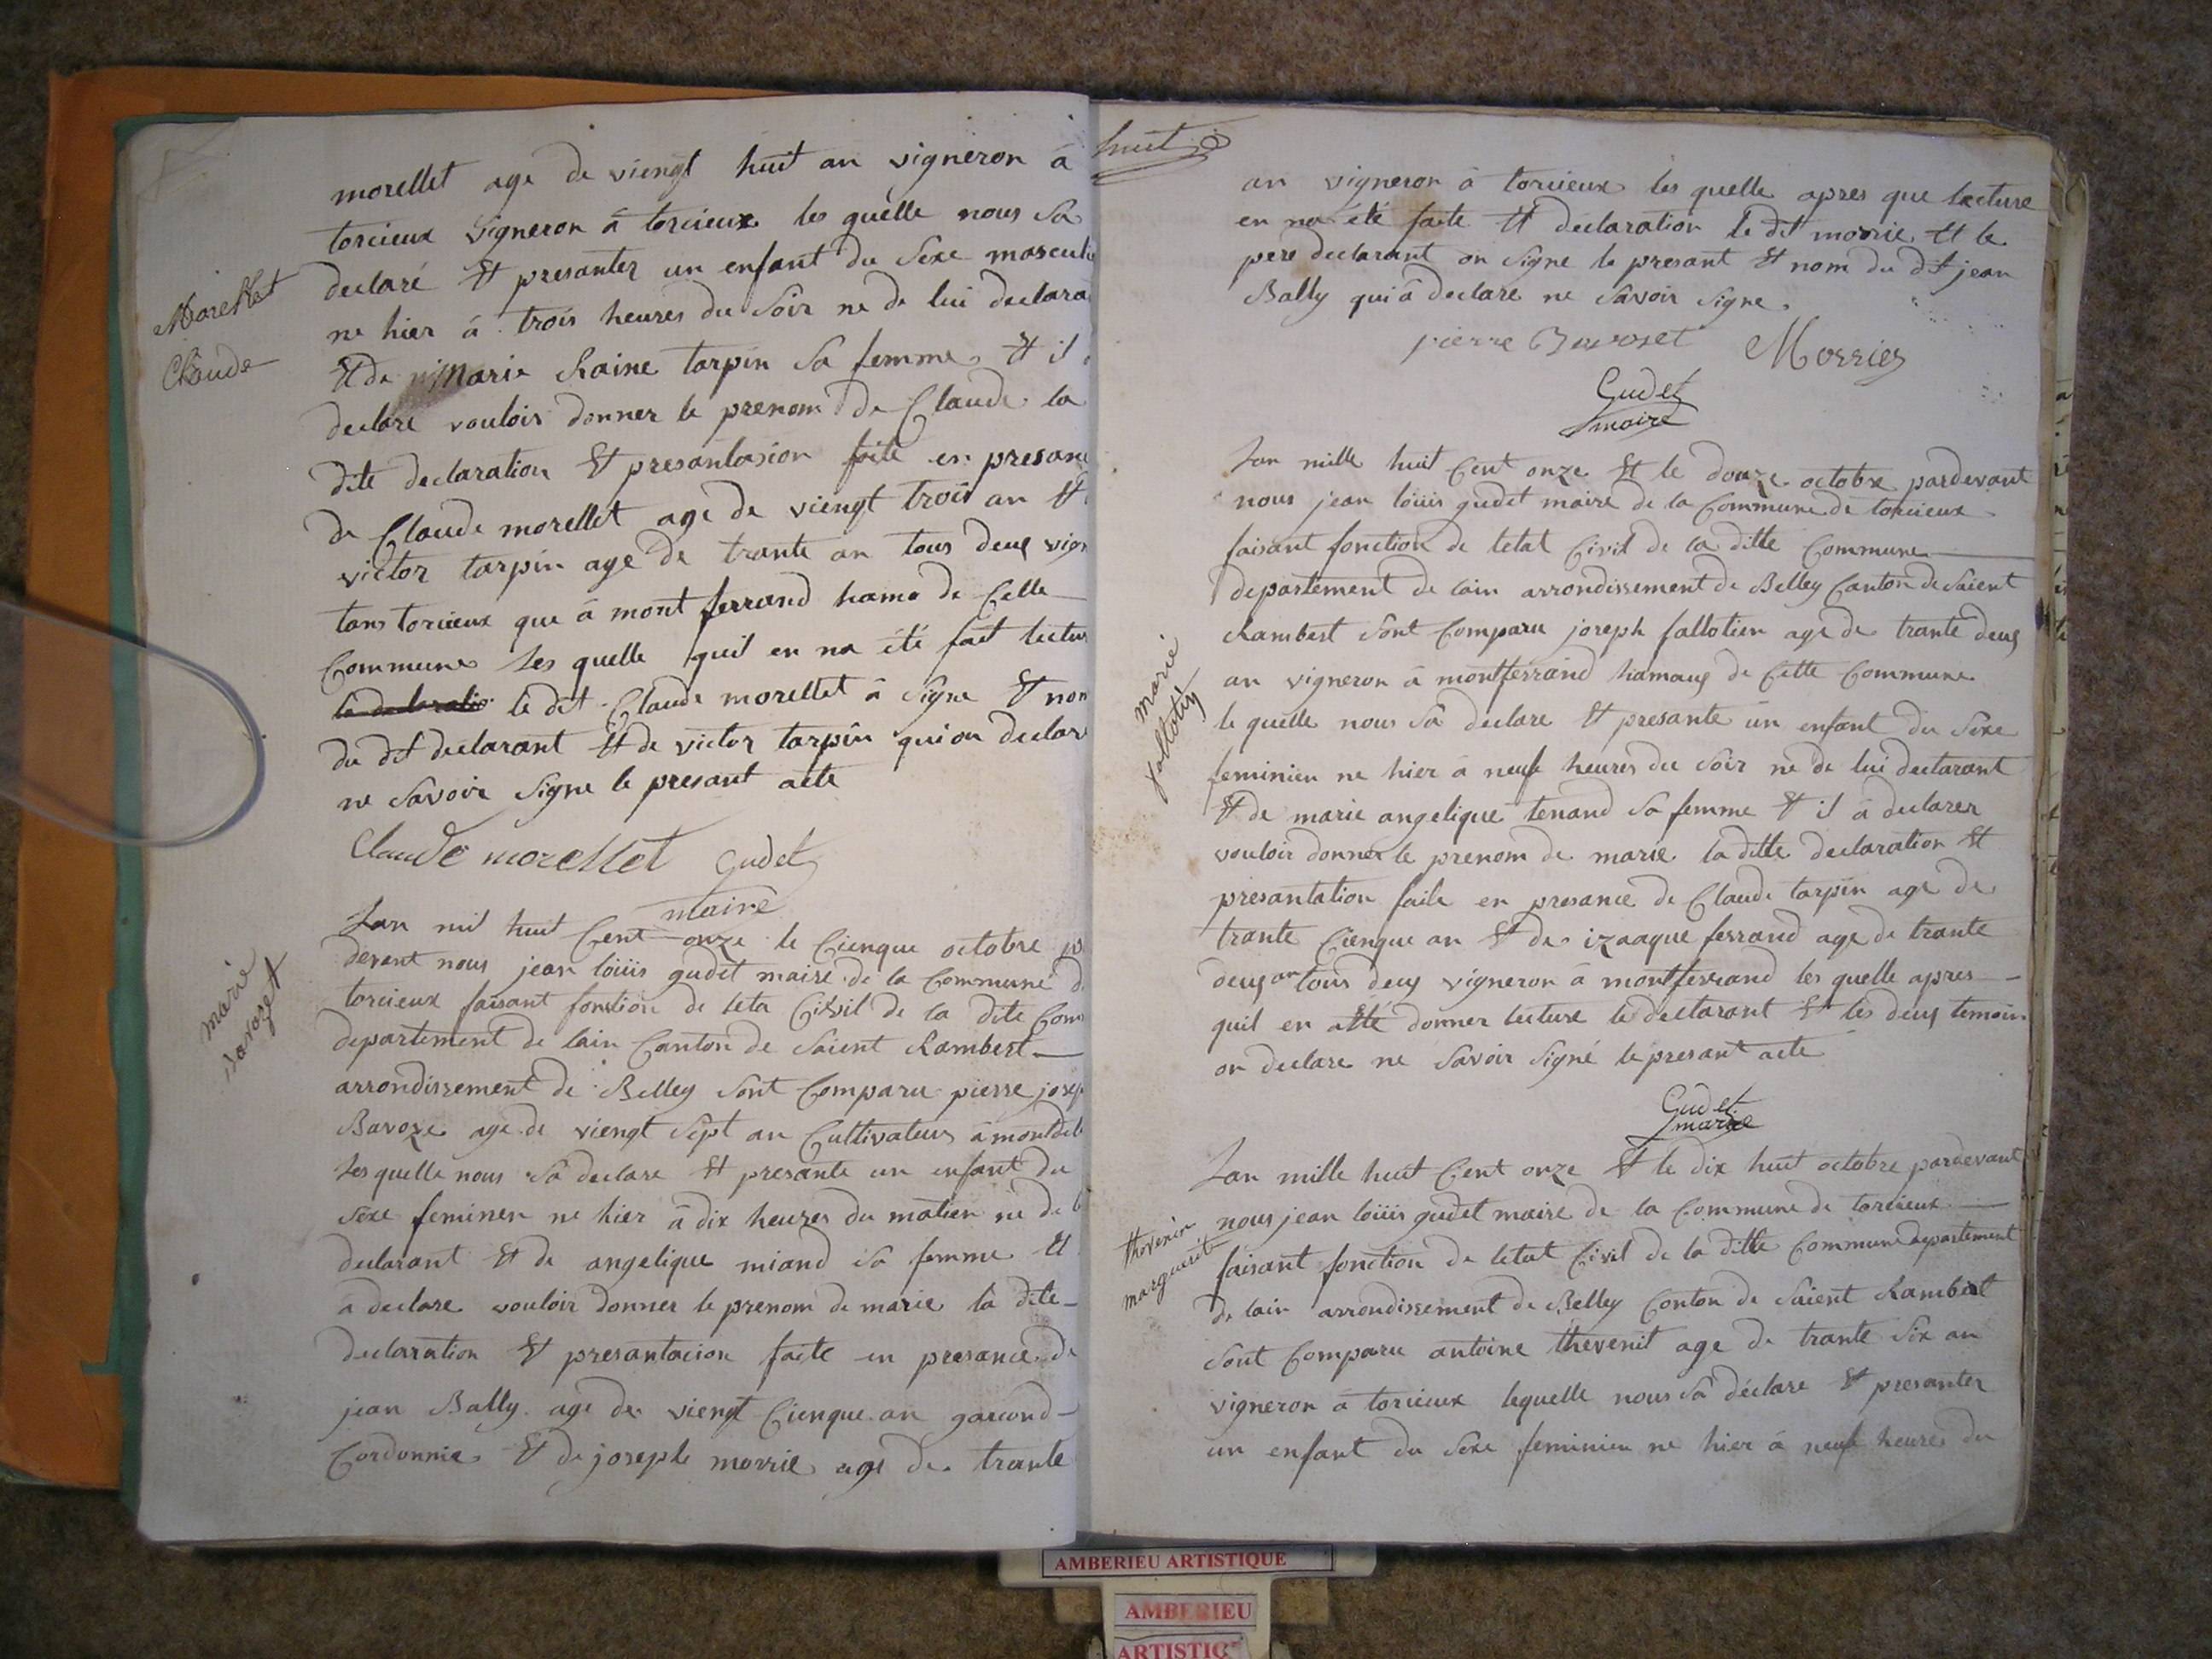 morellet age de viengt huit an vigneron à
torcieux vigneron à torcieux les quelle nous sa
declaré Et presanter un enfant du sexe masculi
ne hier à trois heures du soir ne de lui declara
Et de Marie Raine tarpin sa femme Et il
declare vouloir donner le prenom de Claude la
dite declaration Et presantasion faite en presanc
de Claude morellet age de viengt trois an Et
victor tarpin age de trante an tous deux vign
tans torcieux que à mont ferrand hamo de Cette
Commune les quelle quil en na été fait lectur
le dit Claude morellet à signe Et non
du dit declarant Et de victor tarpin qui on declar
ne savoir signe le presant acte
Claude morellet Gudet
maire
Morellet
Claude
Lan mil huit Cent onze le Cienque octobre p
devant nous jean loüis gudet maire de la Commune d
torcieux faisant fonction de leta Civil de la dite Com
departement de lain Canton de saient Rambert
arrondissement de Belley sont Comparu pierre josep
Bavoze age de viengt sept an Cultivateur à
les quelle nous sa declare Et presante un enfant du
sexe feminen ne hier à dix heures du matien ne de l
declarant Et de angelique miand sa femme Et
a declare vouloir donner le prenom de marie la dite
declaration Et presantacion faite en presance de
jean Bally age de viengt Cienque an garcond
Cordonnie Et de joseph morrie age de trante
marie
Bavozet
huit
an vigneron à torcieux les quelle apres que lecture
en na été faite Et declaration le dit morrie Et le
pere declarant on signe le presant Et nom du dit jean
Bally qui à declare ne savoir signe
pierre Bavozet Morrier
Gudet
maire
Lan mille huit Cent onze Et le douze octobre pardevant
nous jean loüis gudet maire de la Commune de torcieux
faisant fonction de letat Civil de la ditte Commune
departement de lain arrondissement de Belley Canton de saient
Rambert sont Comparu joseph fallotien age de trante deux
an vigneron à montferrand hamaux de Cette Commune
le quelle nous sa declare Et presante un enfant du sexe
feminien ne hier à neufe heures du soir né de lui declarant
Et de marie angelique tenand sa femme Et il à declarer
vouloir donner le prenom de marie la ditte declaration Et
presantation faite en presance de Claude tarpin age de
trante Cienque an Et de izaaque ferrand age de trante
deux an tous deux vigneron à montferrand les quelle apres
quil en a été donner lecture le declarant Et les deux temoin
on declare ne savoir signé le presant acte
Gudet
maire
marie
fallotin
Lan mille huit Cent onze Et le dix huit octobre pardevant
nous jean loüis gudet maire de la Commune de torcieux
faisant fonction de letat Civil de la ditte Commune departement
de lain arrondissement de Belley Conton de saient Rambert
sont Comparu antoine thevenit age de trante six an
vigneron à torcieux lequelle nous sa déclare Et presanter
un enfant du sexe feminien ne hier à neufe heure du
thevenin
marguerite
AMBERIEU ARTISTIQUE
AMBERIEU